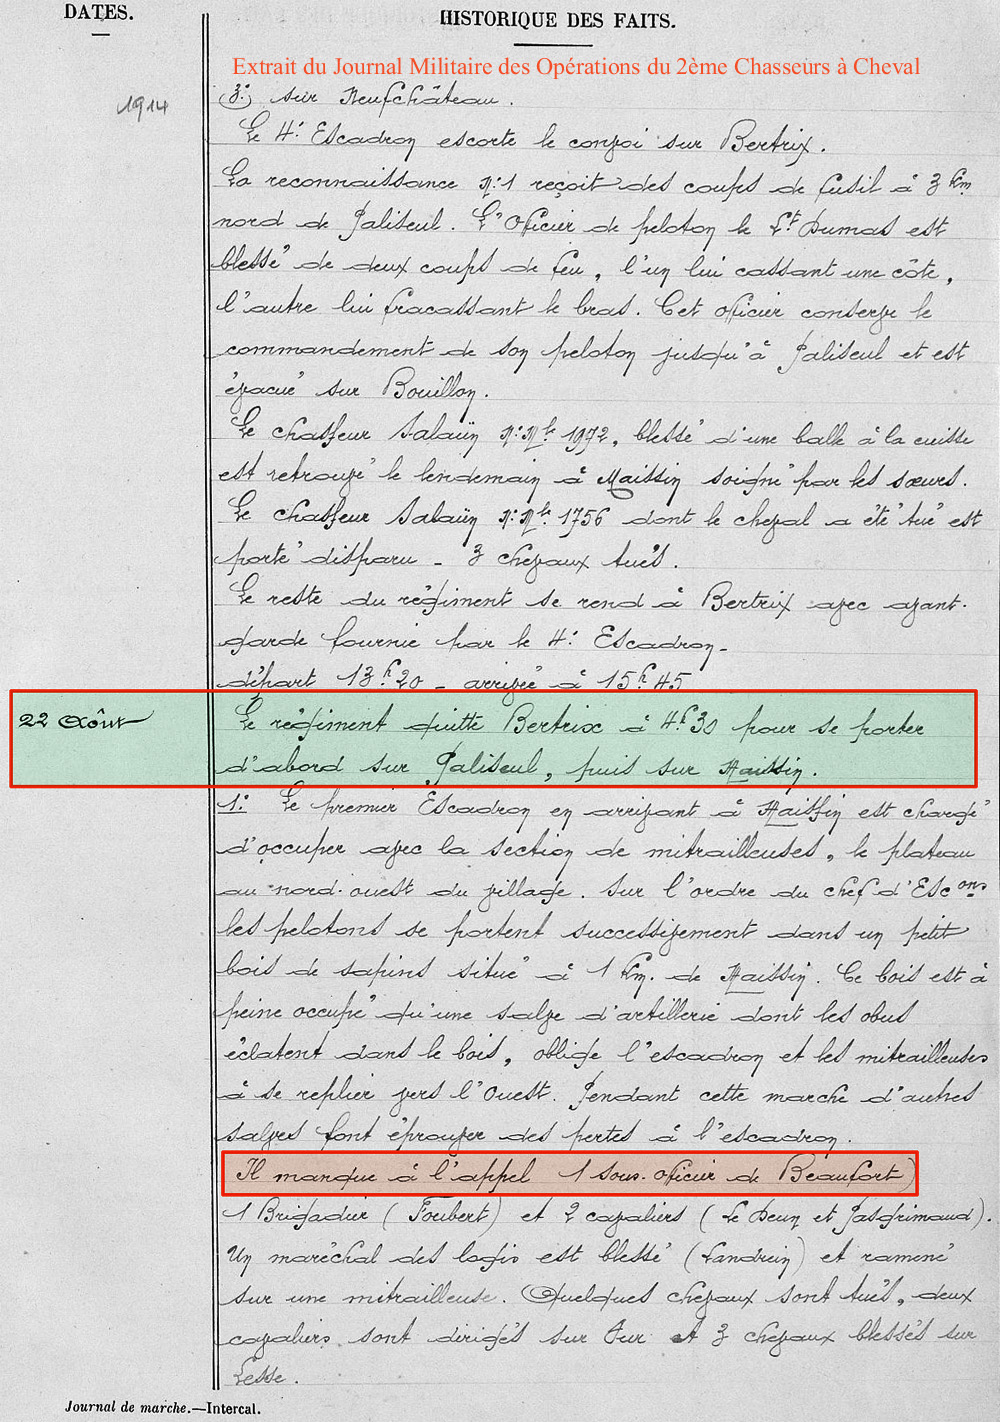 DATES.
HISTORIQUE DES FAITS.
Extrait du Journal Militaire des Opérations du 2ème Chasseurs à Cheval
1914
3°) sur Neufchâteau.
Le 4e Escadron escorte le convoi sur Bertrix.
La reconnaissance N:1 reçoit des coups de fusil à 3 Km
nord de Paliseul. L'Officier de peloton le Lt Dumas est
blessé de deux coups de feu, l'un lui cassant une côte,
l'autre lui fracassant le bras. Cet officier conserve le
commandement de son peloton jusqu'à Paliseul et est
évacué sur Bouillon.
Le chasseur Salaün N:Mle 1972, blessé d'une balle à la cuisse
est retrouvé le lendemain à Maissin soigné par les sœurs.
Le chasseur Salaün N:Mle 1756 dont le cheval a été tué est
porté disparu - 3 chevaux tués.
Le reste du régiment se rend à Bertrix avec avant-
garde fournie par le 4e Escadron -
départ 13h20 - arrivée à 15h45
22 Août
Le régiment quitte Bertrix à 4h30 pour se porter
d'abord sur Paliseul, puis sur Maissin.
1: Le premier Escadron en arrivant à Maissin est chargé
d'occuper avec la section de mitrailleuses, le plateau
au nord-ouest du village. Sur l'ordre du chef d'Escons
les pelotons se portent successivement dans un petit
bois de sapins situé à 1 Km. de Maissin. Ce bois est à
peine occupé qu'une salve d'artillerie dont les obus
éclatent dans le bois, oblige l'escadron et les mitrailleuses
à se replier vers l'Ouest. Pendant cette marche d'autres
salves font éprouver des pertes à l'escadron.
Il manque à l'appel 1 sous-officier de Beaufort)
1 Brigadier (Foubert) et 2 cavaliers (Le Deun et Pasgrimaud).
Un maréchal des logis est blessé (Landrein) et ramené
sur une mitrailleuse. Quelques chevaux sont tués, deux
cavaliers sont dirigés sur Our et 3 chevaux blessés sur
Lesse.
Journal de marche.—Intercal.